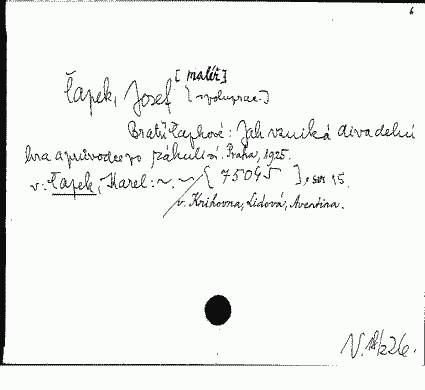 6
[malíř]
Čapek, Josef [spoluprac.]
Bratří Čapkové: Jak vzniká divadelní
hra a průvodce po zákulisí. Praha, 1925.
v: Čapek, Karel: ~. ~ [75045], ser 15.
v. Knihovna, Lidová, Aventina.
V. 18/226.